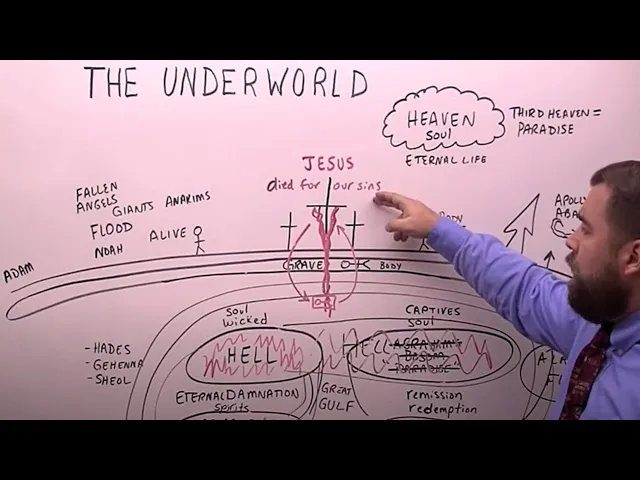 THE UNDERWORLD
HEAVEN
soul
ETERNAL LIFE
THIRD HEAVEN =
PARADISE
JESUS
died for our sins
FALLEN
ANGELS
GIANTS
ANAKIMS
FLOOD
NOAH
ALIVE
ADAM
GRAVE
BODY
BODY
soul
wicked
HELL
CAPTIVES
soul
HELL
PARADISE
- HADES
- GEHENNA
- SHEOL
ETERNAL DAMNATION
spirits
GREAT
GULF
remission
redemption